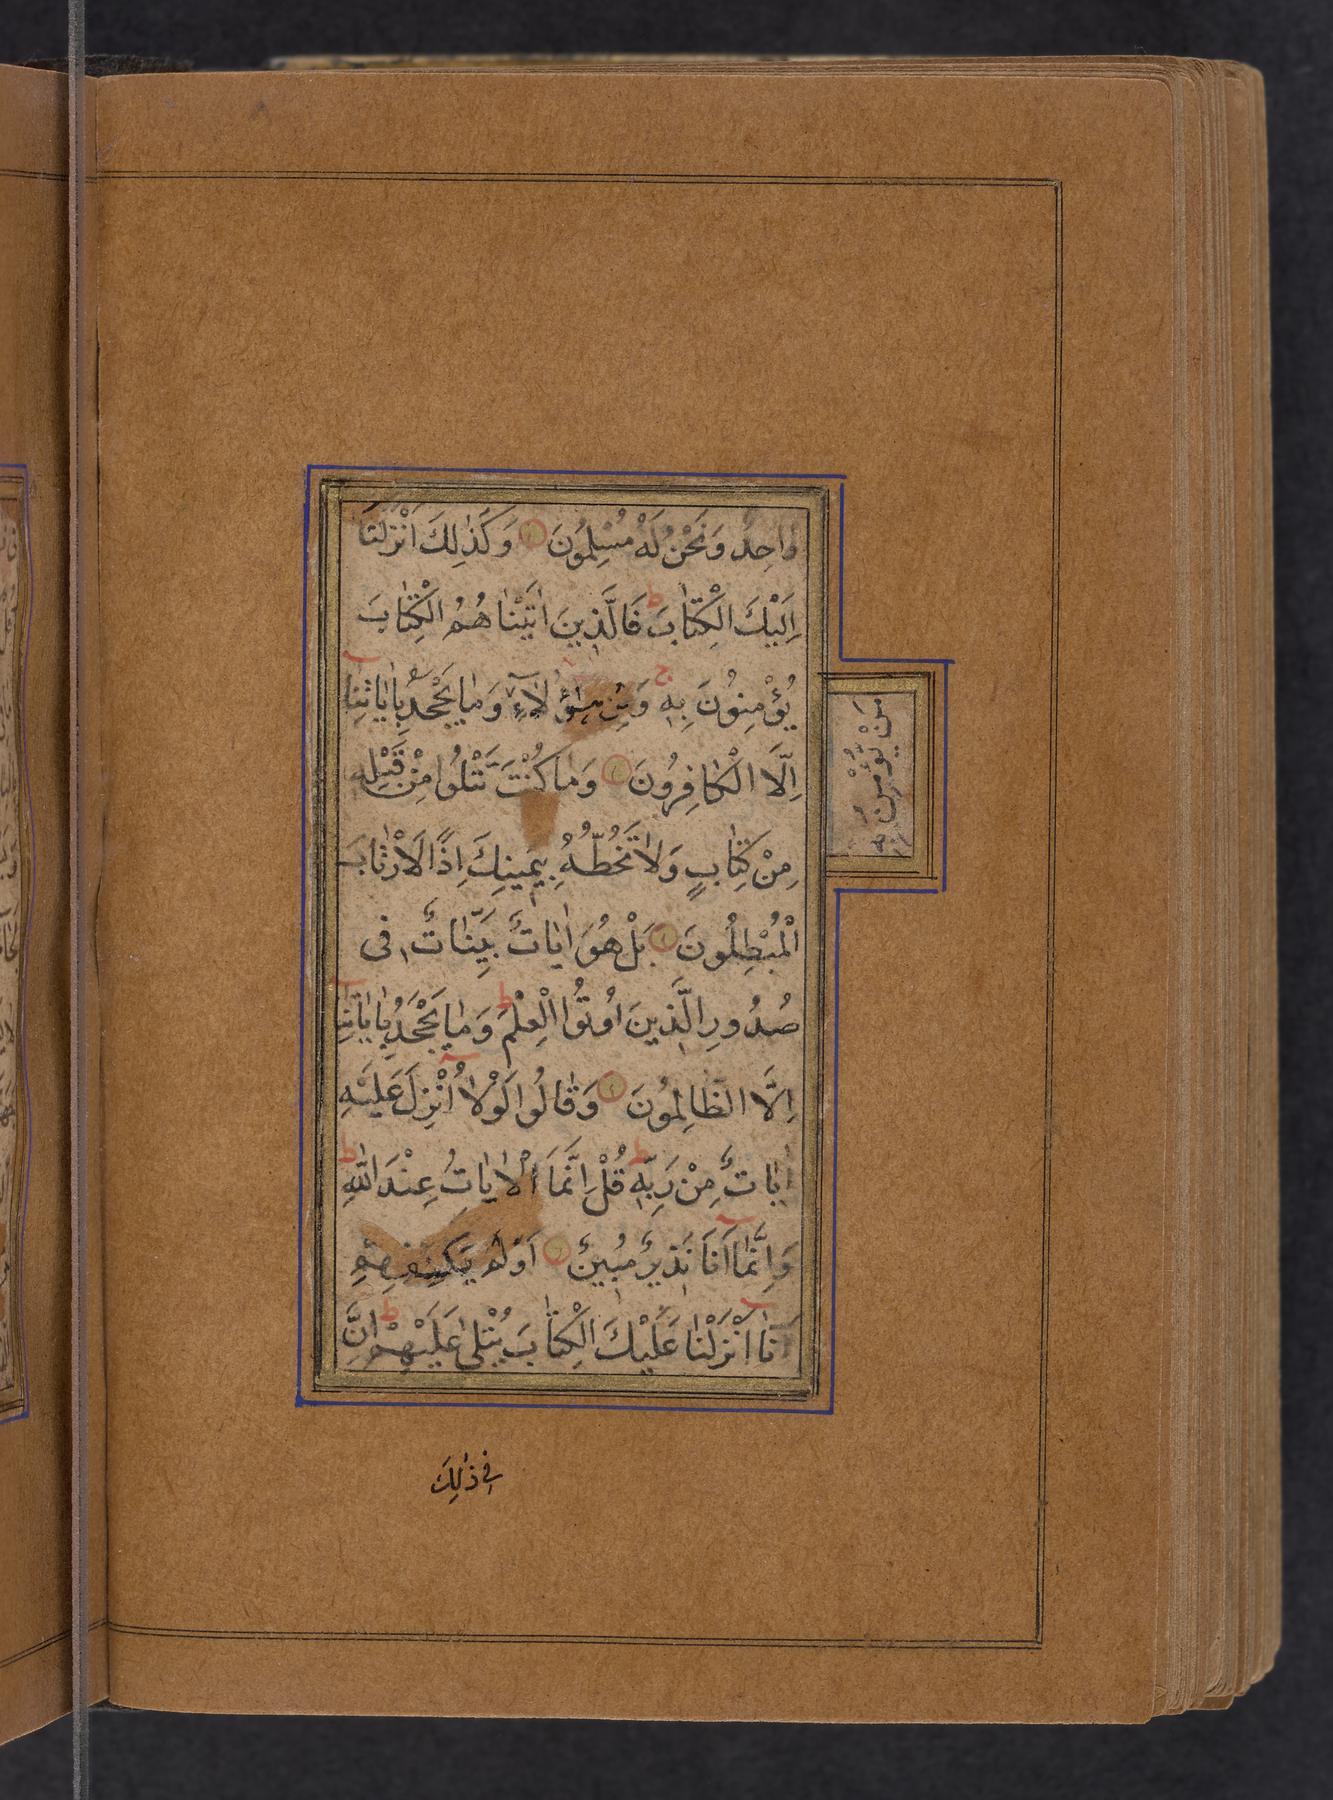 وَاحِدٌ وَنَحْنُ لَهُ مُسْلِمُونَ وَكَذٰلِكَ اَنْزَلْنَا
اِلَيْكَ الْكِتٰابَ ط فَالَّذِينَ اٰتَيْنٰاهُمُ الْكِتٰابَ
يُؤْمِنُونَ بِهِ ج وَمِنْ هٰؤُلٰاءِ وَمٰا يَجْحَدُ بِاٰيٰاتِنٰا
مَنْ يُؤْمِنُ بِهِ
اِلَّا الْكٰافِرُونَ وَمٰا كُنْتَ تَتْلُوا مِنْ قَبْلِهِ
مِنْ كِتٰابٍ وَلٰا تَخُطُّهُ بِيَمِينِكَ اِذًا لَارْتٰابَ
الْمُبْطِلُونَ بَلْ هُوَ اٰيٰاتٌ بَيِّنٰاتٌ فِى
صُدُورِ الَّذِينَ اُوتُوا الْعِلْمَ ط وَمٰا يَجْحَدُ بِاٰيٰاتِنٰا
اِلَّا الظّٰالِمُونَ وَقٰالُوا لَوْلٰا اُنْزِلَ عَلَيْهِ
اٰيٰاتٌ مِنْ رَبِّهِ ط قُلْ اِنَّمَا الْاٰيٰاتُ عِنْدَ اللّٰهِ ط
وَاِنَّمٰا اَنَا نَذِيرٌ مُبِينٌ اَوَلَمْ يَكْفِهِمْ
اَنّٰا اَنْزَلْنٰا عَلَيْكَ الْكِتٰابَ يُتْلىٰ عَلَيْهِمْ ط اِنَّ
فِي ذٰلِكَ